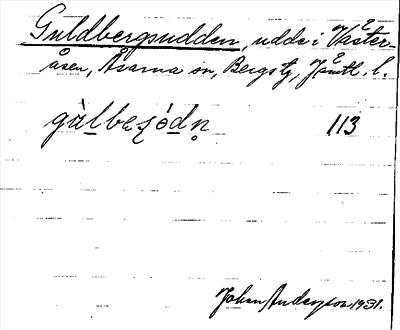 Guldbergsudden, udde i Väster-
åsen, Åsarna sn, Bergs tg, Jämtl. l.
gàlbeʒódn̥ 113
Johan Anderzon 1931.